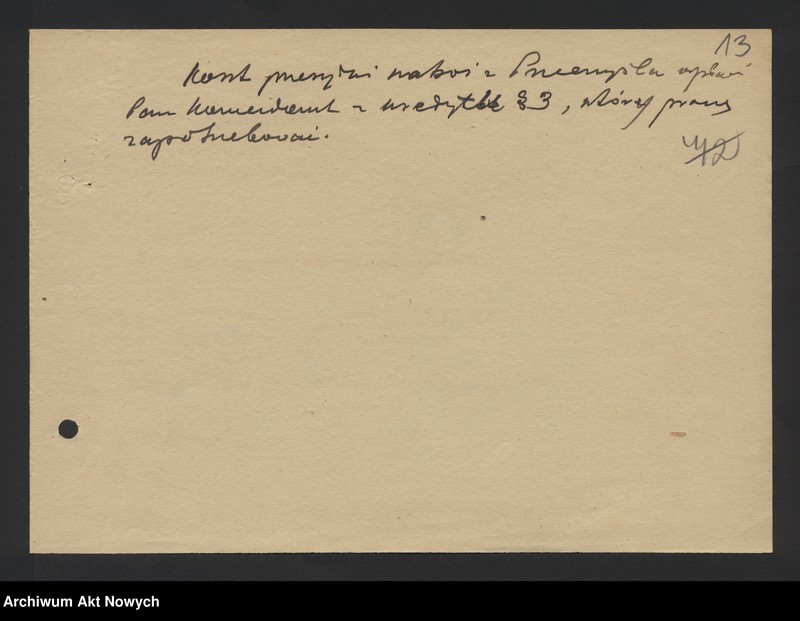 13
Koszt przesyłki nakoi z Przemyśla opłaci
Pan Komendant z kredytu § 3, której proszę
zapotrzebować.
42
Archiwum Akt Nowych